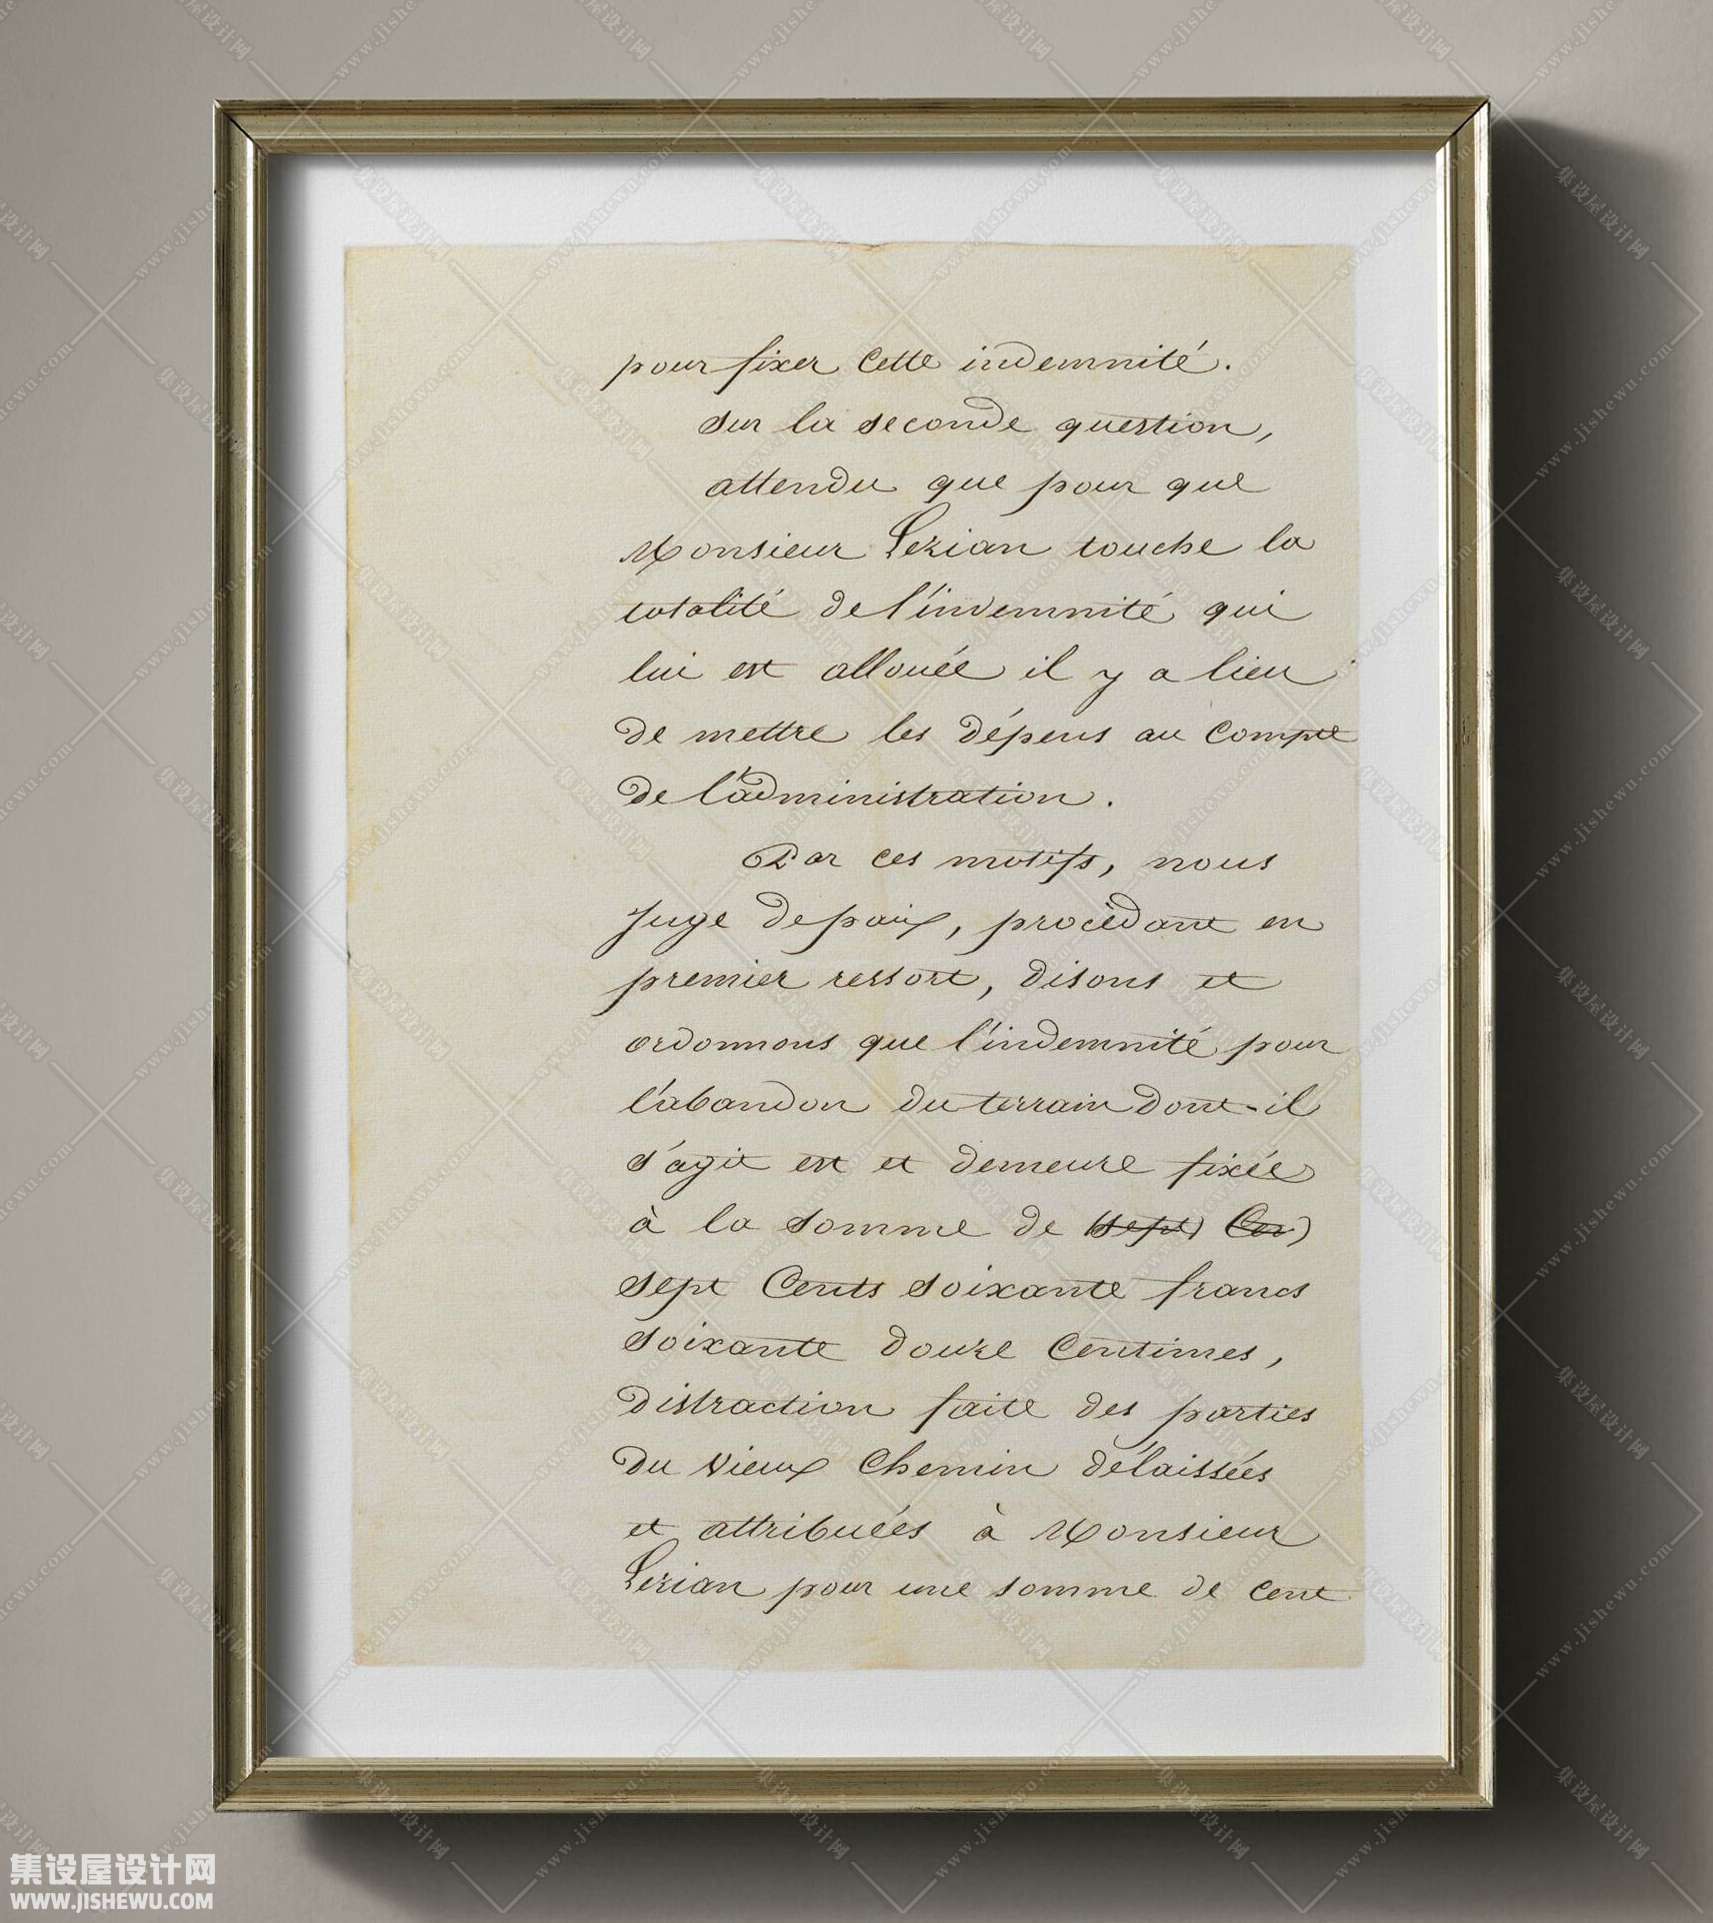 pour fixer cette indemnité.
Sur la seconde question,
attendu que pour que
Monsieur Lezian touche la
totalité de l'indemnité qui
lui est allouée il y a lieu
de mettre les dépens au compte
de l'administration.
Par ces motifs, nous
Juge de paix, procédant en
premier ressort, disons et
ordonnons que l'indemnité pour
l'abandon du terrain dont-il
s'agit est et demeure fixée
à la somme de (sept) (Cen)
sept Cents soixante francs
soixante douze Centimes,
distraction faite des parties
du vieux Chemin délaissées
et attribuées à Monsieur
Lezian pour une somme de cent
集设屋设计网
www.JISHEWU.COM